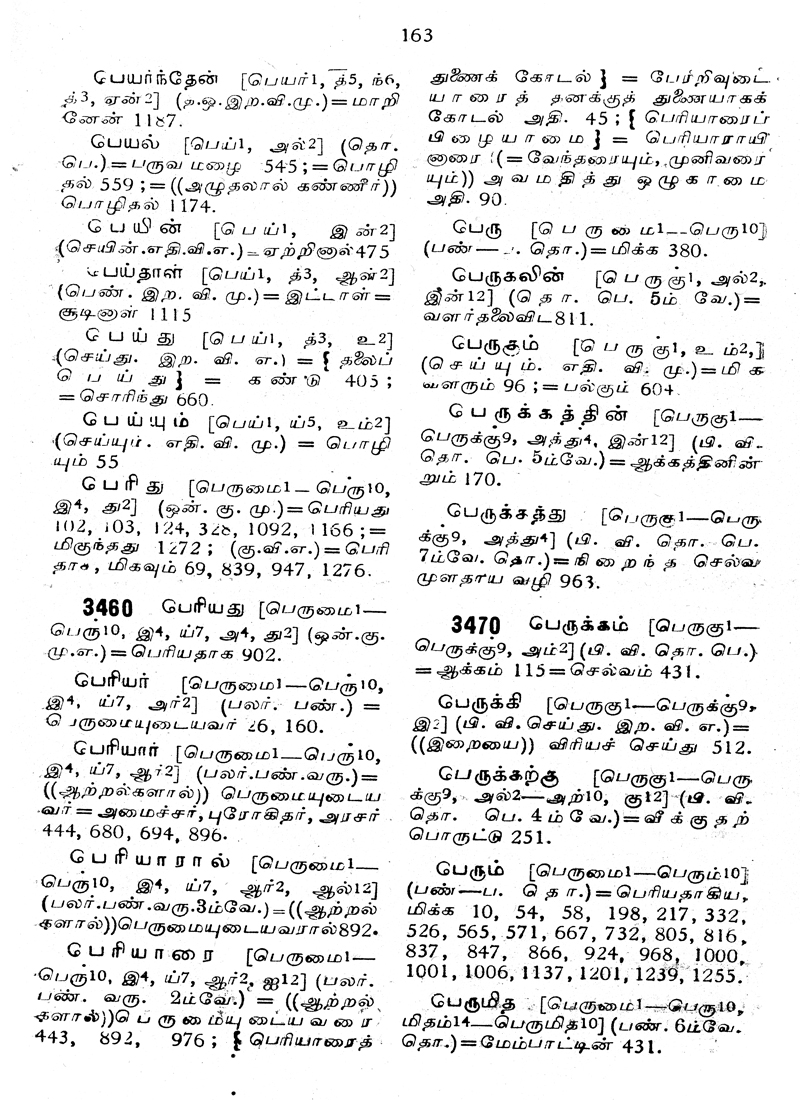 163
பெயர்ந்தேன் [பெயர்1, த்5, ந்6,
த்3, ஏன்2] (த.ஒ.இற.வி.மு.)=மாறி
னேன் 1187.
பெயல் [பெய்1, அல்2] (தொ.
பெ.)=பருவ மழை 545;=பொழி
தல் 559;=((அழுதலால் கண்ணீர்))
பொழிதல் 1174.
பெயின் [பெய்1, இன்2]
(செயின்.எதி.வி.எ.)=ஏற்றினால்475
பெய்தாள் [பெய்1, த்3, ஆள்2]
(பெண். இற. வி. மு.)=இட்டாள்=
சூடினாள் 1115
பெய்து [பெய்1, த்3, உ2]
(செய்து. இற. வி. எ.) = { தலைப்
பெய்து} = கண்டு 405;
=சொரிந்து 660.
பெய்யும் [பெய்1, ய்5, உம்2]
(செய்யும். எதி. வி. மு.) = பொழி
யும் 55
பெரிது [பெருமை1—பெரு10,
இ4, து2] (ஒன். கு. மு.)=பெரியது
102, 103, 124, 328, 1092, 1166;=
மிகுந்தது 1272; (கு.வி.எ.)=பெரி
தாக, மிகவும் 69, 839, 947, 1276.
3460 பெரியது [பெருமை1—
பெரு10, இ4, ய்7, அ4, து2] (ஒன்.கு.
மு.எ.)=பெரியதாக 902.
பெரியர் [பெருமை1—பெரு10,
இ4, ய்7, அர்2] (பலர். பண்.) =
பெருமையுடையவர் 26, 160.
பெரியார் [பெருமை1—பெரு10,
இ4, ய்7, ஆர்2] (பலர்.பண்.வரு.)=
((ஆற்றல்களால்)) பெருமையுடைய
வர்=அமைச்சர், புரோகிதர், அரசர்
444, 680, 694, 896.
பெரியாரால் [பெருமை1—
பெரு10, இ4, ய்7, ஆர்2, ஆல்12]
(பலர்.பண்.வரு.3ம்வே.)=((ஆற்றல்
களால்))பெருமையுடையவரால்892.
பெரியாரை [பெருமை1—
பெரு10, இ4, ய்7, ஆர்2, ஐ12] (பலர்.
பண். வரு. 2ம்வே.) = ((ஆற்றல்
களால்))பெருமையுடையவரை
443, 892, 976; { பெரியாரைத்
துணைக் கோடல் } = பேரறிவுடை
யாரைத் தனக்குத் துணையாகக்
கோடல் அதி. 45; { பெரியாரைப்
பிழையாமை } = பெரியாராயி
னாரை ((=வேந்தரையும், முனிவரை
யும்)) அவமதித்து ஒழுகாமை
அதி. 90.
பெரு [பெருமை1—பெரு10]
(பண்—ப. தொ.)=மிக்க 380.
பெருகலின் [பெருகு1, அல்2,
இன்12] (தொ. பெ. 5ம் வே.)=
வளர்தலைவிட811.
பெருகும் [பெருகு1, உம்2,]
(செய்யும். எதி. வி. மு.)=மிக
வளரும் 96;=பல்கும் 604.
பெருக்கத்தின் [பெருகு1—
பெருக்கு9, அத்து4, இன்12] (பி. வி.
தொ. பெ. 5ம்வே.)=ஆக்கத்தினின்
றும் 170.
பெருக்சத்து [பெருகு1—பெரு
க்கு9, அத்து4] (பி. வி. தொ. பெ.
7ம்வே. தொ.)=நிறைந்த செல்வ
முளதாய வழி 963.
3470 பெருக்கம் [பெருகு1—
பெருக்கு9, அம்2] (பி. வி. தொ. பெ.)
=ஆக்கம் 115=செல்வம் 431.
பெருக்கி [பெருகு1—பெருக்கு9,
இ2] (பி. வி.செய்து. இற. வி. எ.)=
((இறையை)) விரியச் செய்து 512.
பெருக்கற்கு [பெருகு1—பெரு
க்கு9, அல்2—அற்10, கு12] (பி. வி.
தொ. பெ. 4ம்வே.)=வீக்குதற்
பொருட்டு 251.
பெரும் [பெருமை1—பெரும்10]
(பண்—ப. தொ.)=பெரியதாகிய,
மிக்க 10, 54, 58, 198, 217, 332,
526, 565, 571, 667, 732, 805, 816,
837, 847, 866, 924, 968, 1000,
1001, 1006, 1137, 1201, 1239, 1255.
பெருமித [பெருமை1—பெரு10,
மிதம்14—பெருமித10] (பண். 6ம்வே.
தொ.)=மேம்பாட்டின் 431.